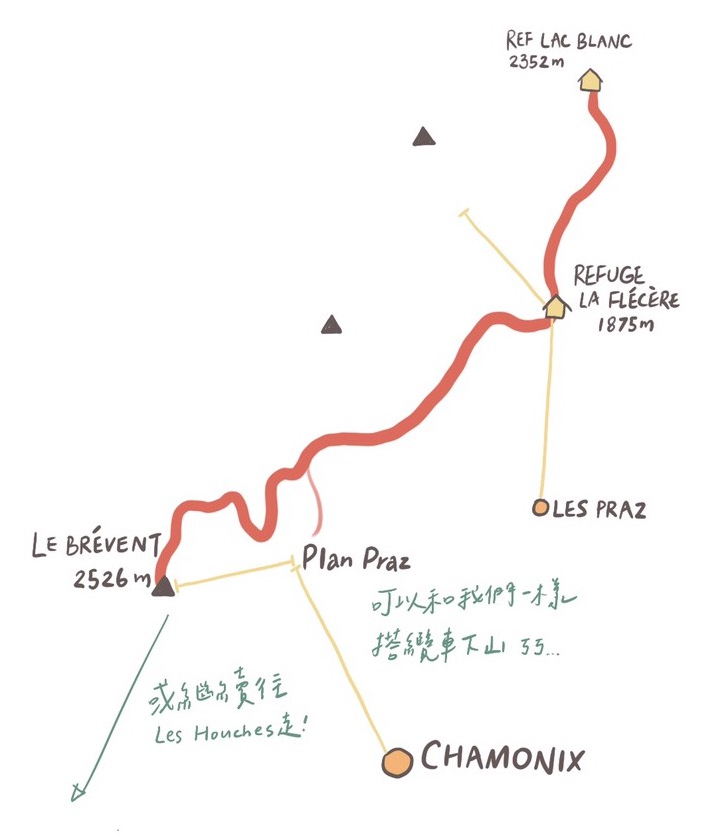 REF LAC BLANC
2352m
REFUGE
LA FLÉCÈRE
1875m
LES PRAZ
LE BRÉVENT
2526m
Plan Praz
可以和我們一樣
搭纜車下山 ㄎㄎ...
或繼續往
Les Houches走!
CHAMONIX